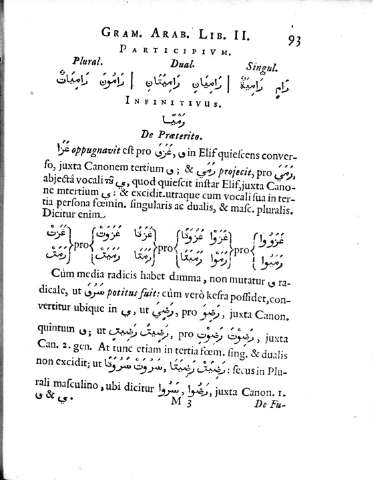 GRAM. ARAB. LIB. II. 93
PARTICIPIVM.
Plural. Dual. Singul.
رَامٍ رَامِيَةٌ | رَامِيَانِ رَامِيَتَانِ | رَامُونَ رَامِيَاتٌ
INFINITIVUS.
رَمْيًا
De Præterito.
غَزَا oppugnavit est pro غَزَوَ, و in Elif quiescens converso, juxta Canonem tertium و; & رَمَي projecit, pro رَمَيَ,
abjectâ vocali τῦ ي, quod quiescit instar Elif, juxta Canonem tertium ي: & excidit utraque cum vocali sua in tertia persona fœmin. singularis ac dualis, & masc. pluralis.
Dicitur enim.
غَزَتْ pro غَزَوَتْ غَزَتَا pro غَزَوَتَا غَزَوْا pro غَزَوُوا
رَمَتْ pro رَمَيَتْ رَمَتَا pro رَمَيَتَا رَمَوْا pro رَمَيُوا
Cùm media radicis habet damma, non mutatur و radicale, ut سَرُوَ potitus fuit: cùm verò kesra possidet, convertitur ubique in ي, ut رَضِيَ, pro رَضِوَ, juxta Canon.
quintum و; ut رَضِيَتْ رَضِيتَ, pro رَضِوَتْ رَضِوْتَ, juxta
Can. 2. gen. At tunc etiam in tertia fœm. sing. & dualis
non excidit; ut رَضِيَتْ رَضِيَتَا, سَرُوَتْ سَرُوَتَا: secus in Plurali masculino, ubi dicitur رَضُوا, سَرُوا, juxta Canon. 1.
و & ي.
M 3 De Fu-